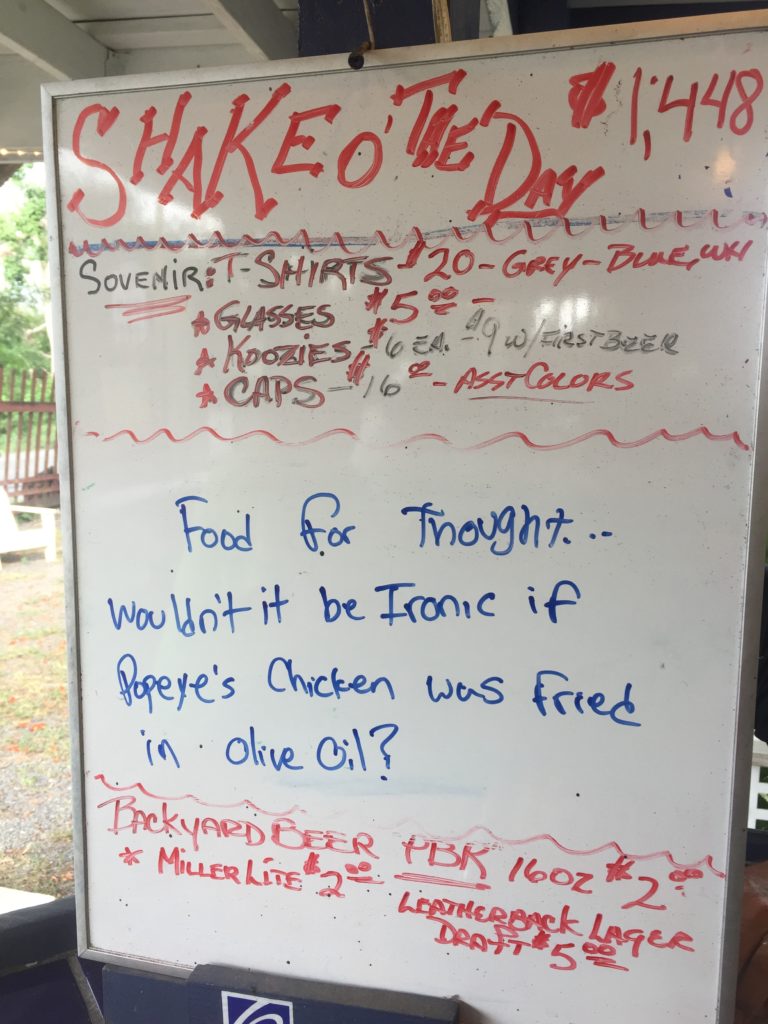 SHAKE O' THE DAY $1,448
SOVENIR: T-SHIRTS - $20 - GREY - BLUE, WH
* GLASSES $5 00 -
* KOOZIES - $6 EA. - $9 W/FIRST BEER
* CAPS - $16 - ASST COLORS
Food for Thought...
wouldn't it be Ironic if
Popeye's Chicken was fried
in Olive Oil?
BACKYARD BEER PBR 16OZ $2.00
* MILLER LITE $2.00
LEATHERBACK LAGER
DRAFT $5.00